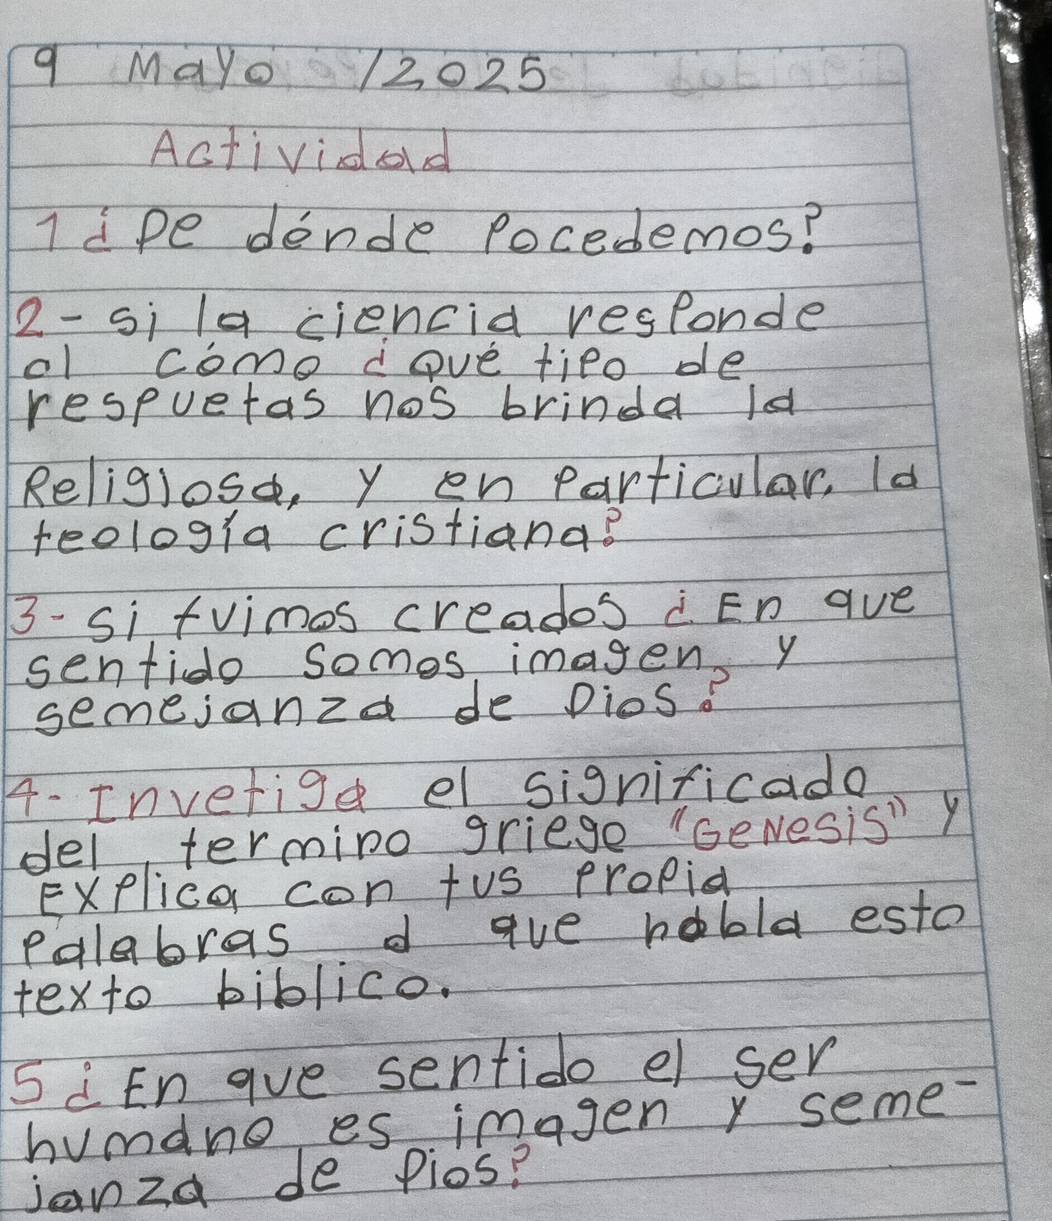 9 Mayo /2025
Actividad
1 ¿De dónde Pocedemos?
2- si la ciencia responde
al cómo ¿Qué tipo de
respuetas nos brinda la
Religiosa, y en Particular, la
teología cristiana?
3- Si fuimos creados ¿En que
sentido somos imagen, y
semejanza de Dios?
4- Invetiga el significado
del termino griego "GeNesis" y
Explica con tus propia
Palabras d que habla esto
texto biblico.
5 ¿En que sentido el ser
humano es imagen y seme-
janza de Dios?